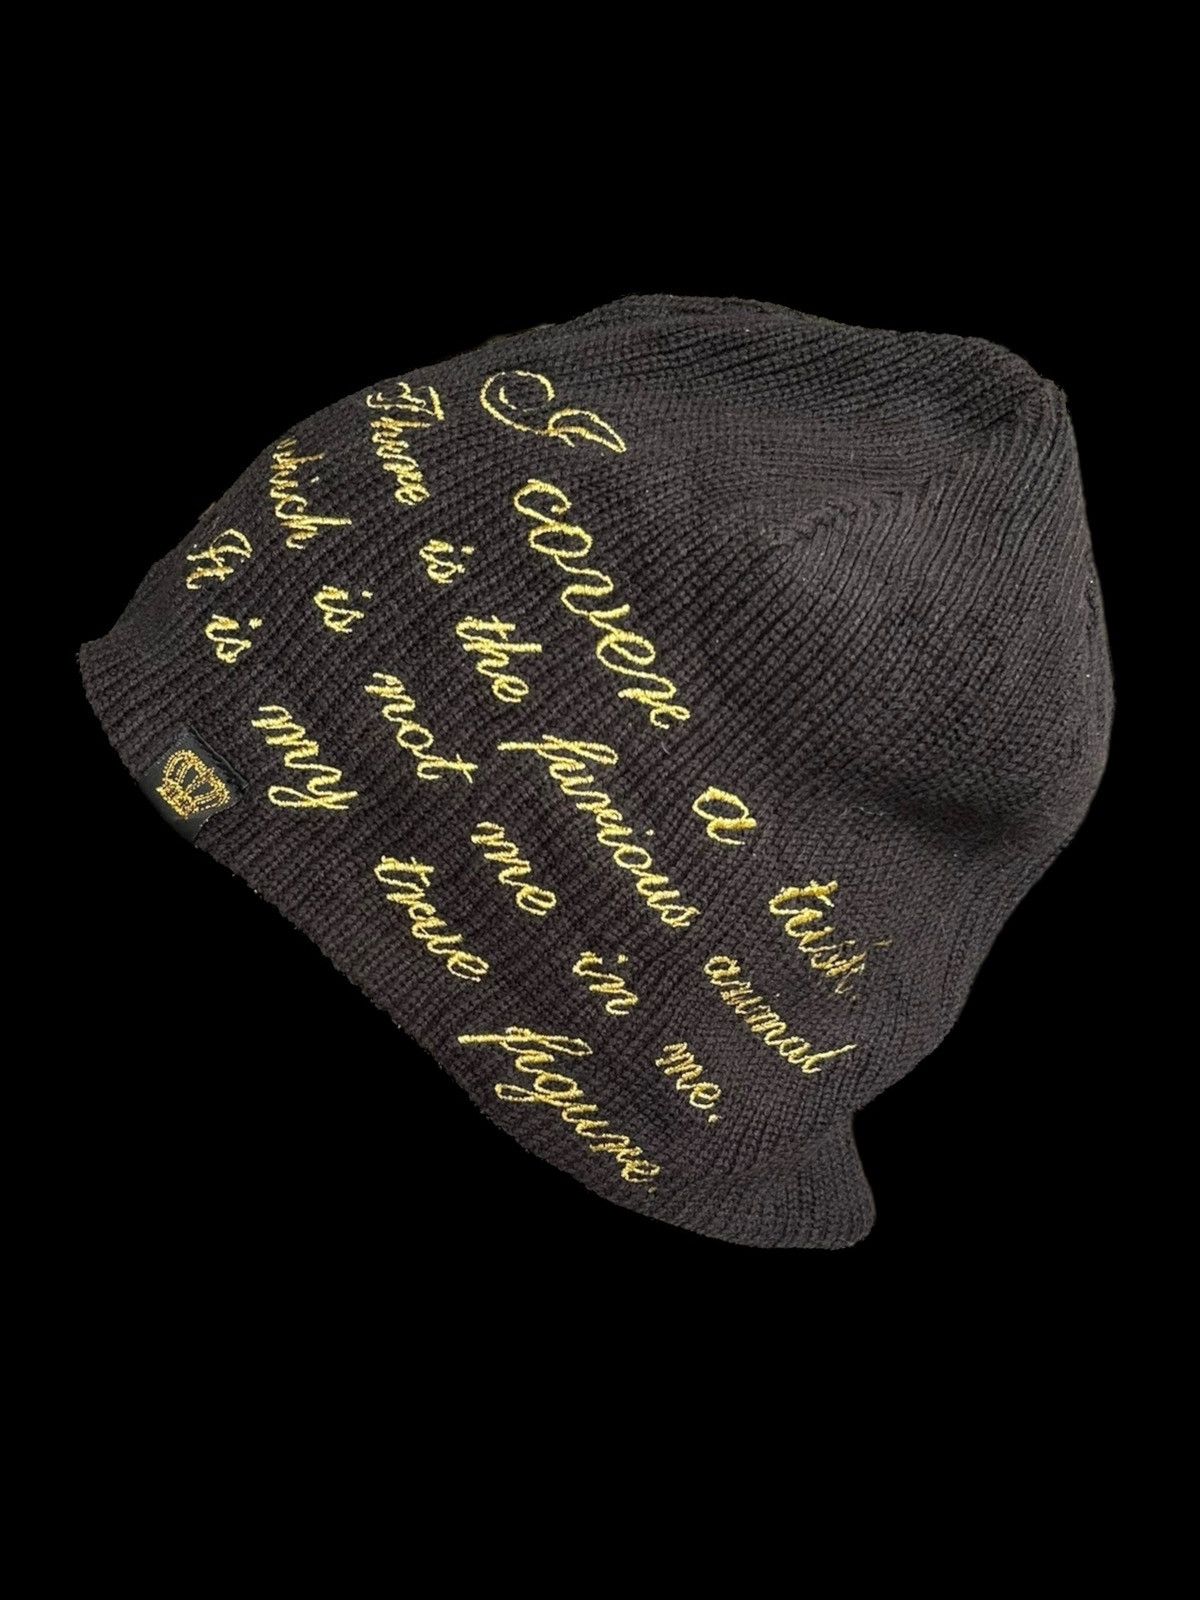 I cover a tusk.
There is the furious animal
which is not me in me.
It is my true figure.